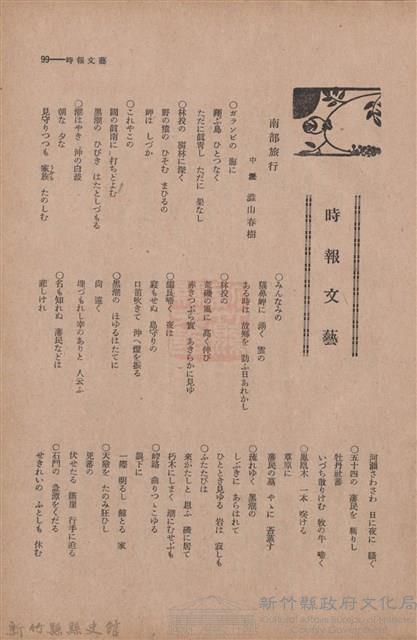 99——時報文藝
時報文藝
南部旅行
中壢 澁山春樹
○ガランビの 海に
翔ぶ鳥 ひとつなく
ただに眞靑し ただに 果なし
○林投の 密林に深く
野の猿の ひそむ まひるの
岬は しづか
○これやこの
國の眞南に 打ちとよむ
黑潮の ひびき はたとしづもる
○潮はやき 沖の白波
朝な 夕な
見守りつつも 家族 たのしむ
○みんなみの
猫鼻岬に 湧く 雲の
ある時は 故鄉を 訪ふ日あれかし
○林投の
荒磯の風に 高く伸び
赤きつぶら實 あきらかに見ゆ
○颱風嘯く 夜は
寢もせぬ 島守りの
口笛吹きて 沖へ燈を振る
○黑潮の ほゆるはたてに
尙遠く
埋づもれし幸のありと 人云ふ
○名も知れぬ 蕃民などは
悲しけれ
河瀬さわさわ 日に夜に 騷ぐ
○五十四の 蕃民を 斬りし
牡丹社蕃
いづち散りけむ 牧の牛 啼く
○鳳凰木 一本 咲ける
草原に
蕃民の墓 やゝに 苔蒸す
○流れゆく 黑潮の
しぶきに あらはれて
ひととき見ゆる 岩は 寂しも
○ふたたびは
來がたしと 思ふ 磯に居て
朽木にしまく 潮にむせぶも
○崚路 曲りつゝこゆる
眼下に
一際 明るし 鯨とる 家
○天險を たのみ狂ひし
兇蕃の
伏せたる 斷崖 行手に迫る
○石門の 急潭をくだる
せきれいの ふとしも 休む
新竹縣縣史館
新竹縣政府文化局
Cultural Affairs Bureau of Hsinchu
County Government